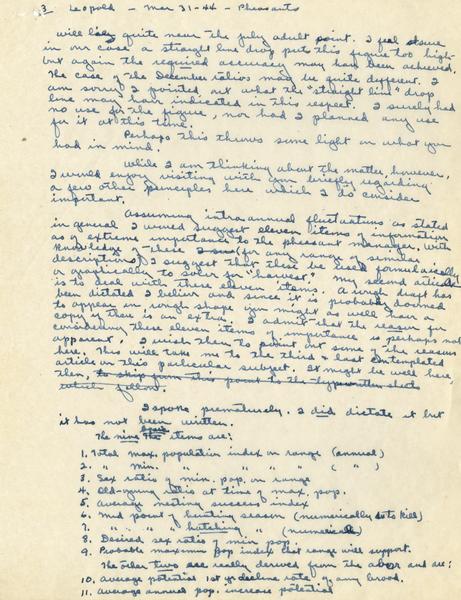 3 Leopold - Mar 31-44 - Pheasants
will likely quite near the July adult point. I feel sure
in our case a straight line drop put this figure too high-
but again the required accuracy may have been achieved.
The case of the December ratios may be quite different. I
am sorry I pointed out what the "straight line" drop
line may have indicated in this respect. I surely had
no use for the figure, nor had I planned any use
for it at this time.
Perhaps this throws some light on what you
had in mind.
While I am thinking about the matter, however,
I would enjoy visiting with you briefly regarding
a few other principles here which I do consider
important.
Assuming intra annual fluctuations as stated
in general I would suggest eleven items of information
as of extreme importance to the pheasant manager. With
knowledge of these (for any range of similar
description) I suggest that these be used formulaically
or graphically to solve for "harvest". My second article
is to deal with these eleven items. A rough draft has
been dictated I believe and since it is probably doomed
to appear in rough shape you might as well have a
copy if there is an extra. I admit that the reason for
considering these eleven items of importance is perhaps not
apparent. I wish then to point out some of the reasons
here. This will take me to the third & last contemplated
article on this particular subject. It might be well here,
then, to skip from this point to the typewritten sheets
which follow.
I spoke prematurely. I did dictate it but
it has not been written.
The nine basic items are:
1. Total max. population index on range (annual)
2. " min. " " " " ( " )
3. Sex ratio of min. pop. on range
4. Old-young ratio at time of max. pop.
5. Average nesting success index
6. Mid point of hunting season (numerically as to kill)
7. " " " hatching " (numerically)
8. Desired sex ratio of min pop.
9. Probable max min pop index that range will support.
The other two are really derived from the above and are:
10. average potential 1st yr decline rate of any brood.
11. average annual pop. increase potential